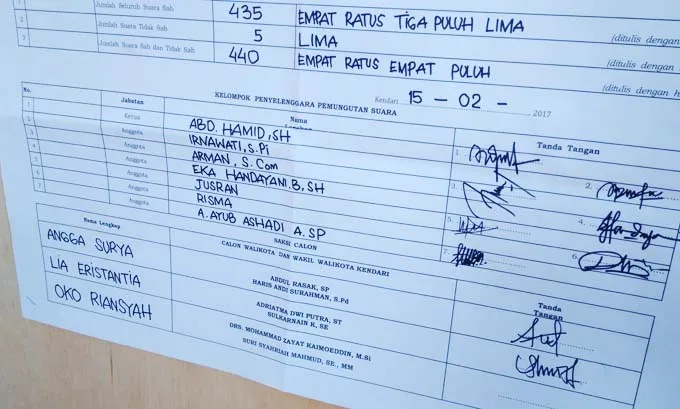 1 Jumlah Seluruh Suara Sah 435 EMPAT RATUS TIGA PULUH LIMA
2 Jumlah Suara Tidak Sah 5 LIMA (ditulis dengan
3 Jumlah Suara Sah dan Tidak Sah 440 EMPAT RATUS EMPAT PULUH (ditulis dengan
(ditulis dengan h
Kendari 15 - 02 - 2017
KELOMPOK PENYELENGGARA PEMUNGUTAN SUARA
No. Jabatan Nama Lengkap Tanda Tangan
1 Ketua ABD. HAMID, SH 1.
2 Anggota IRNAWATI, S.Pi 2.
3 Anggota ARMAN, S. Com 3.
4 Anggota EKA HANDAYANI.B, SH 4.
5 Anggota JUSRAN 5.
6 Anggota RISMA 6.
7 Anggota A. AYUB ASHADI A. SP 7.
SAKSI CALON
Nama Lengkap CALON WALIKOTA DAN WAKIL WALIKOTA KENDARI Tanda Tangan
ANGGA SURYA ABDUL RASAK, SP
HARIS ANDI SURAHMAN, S.Pd
LIA ERISTANTIA ADRIATMA DWI PUTRA, ST
SULKARNAIN K, SE
OKO RIANSYAH DRS. MOHAMMAD ZAYAT KAIMOEDDIN, M.Si
SURI SYAHRIAH MAHMUD, SE., MM